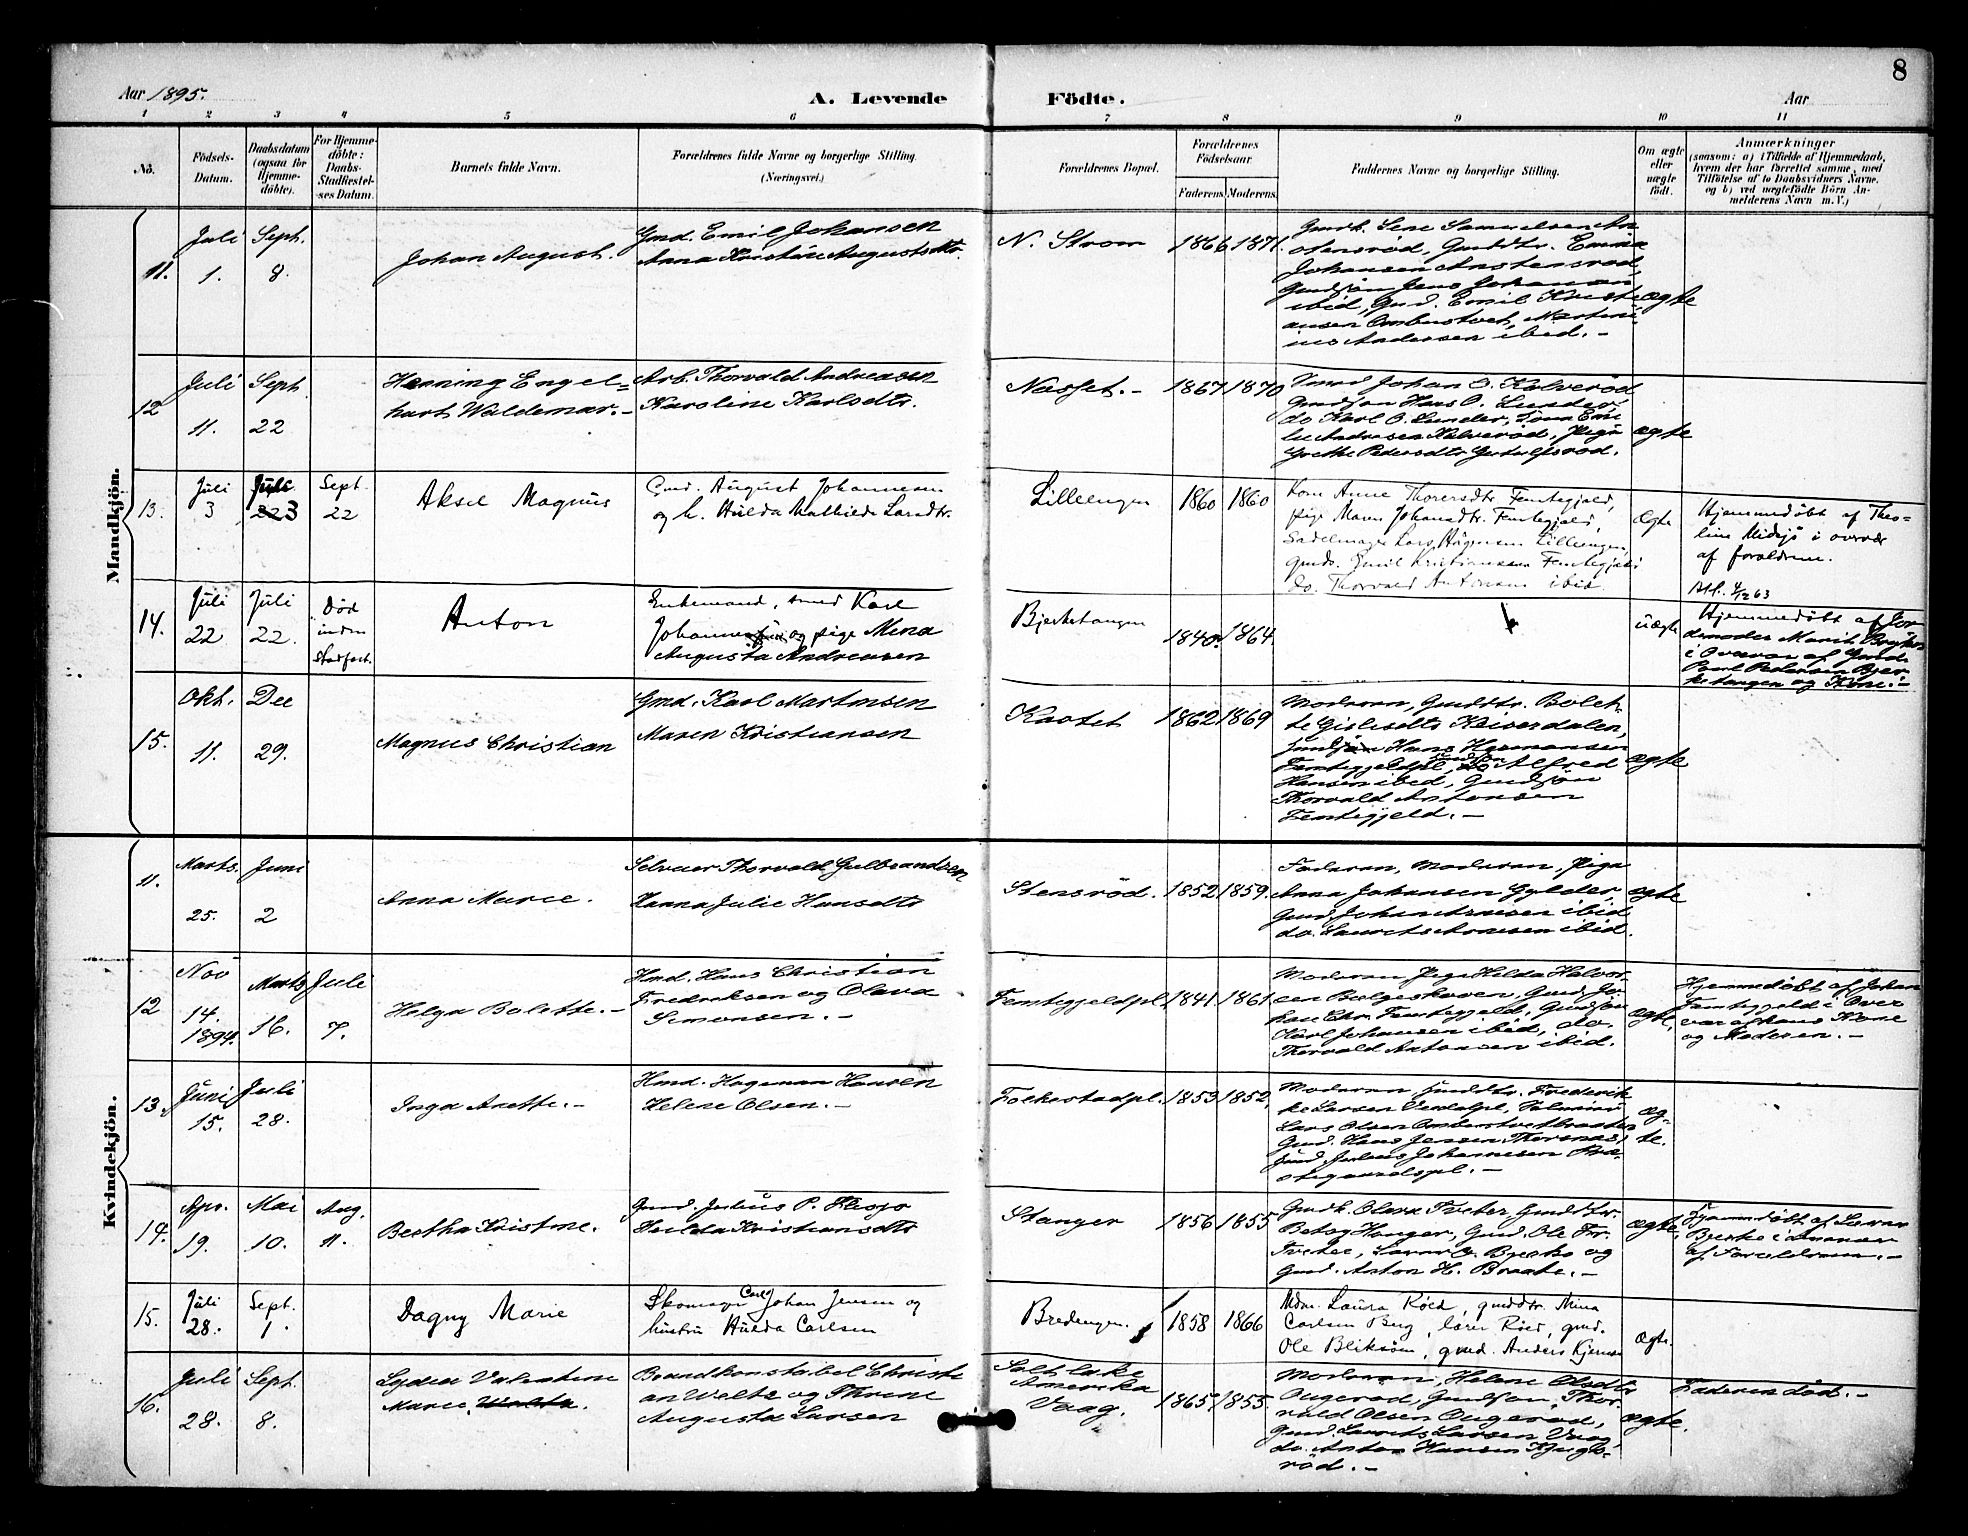 8
Aar 1895.
A. Levende Födte.
Aar
1 2 3 4 5 6 7 8 9 10 11
No.
Födsels-Datum.
Daabsdatum (ogsaa for Hjemme-döbte).
For Hjemme-döbte: Daabs-Stadfæstel-ses Datum.
Barnets fulde Navn.
Forældrenes fulde Navne og borgerlige Stilling. (Næringsvei.)
Forældrenes Bopæl.
Forældrenes Födselsaar.
Faderens Moderens.
Faddernes Navne og borgerlige Stilling.
Om ægte eller uægte födt.
Anmærkninger
(saasom: a) i Tilfælde af Hjemmedaab, hvem der har forrettet samme, med Tilföielse af to Daabsvidners Navne, og b) ved uægtefödte Börn An-melderens Navn m. V.)
Mandkjön.
11.
Juli 1.
Sept. 8.
Johan August.
Gmd. Emil Johansen
Anna Kristine Augustsdtr.
N. Strom
1866 1871.
Johansen
ibid, Gmd. Emil Kristi-
ansen Ombustvet, Martini-
us Andersen ibid. -
ægte
12
Juli 11.
Sept. 22
Henning Engel=
hart Waldemar. -
Arb. Thorvald Andreasen
Karoline Karlsdtr.
Næsset. -
1867 1870
Johan O. Kalverød
Gmdsøn Hans O. Lunder,
do Karl O. Lunder,
Andresen Kalverød, Pige
Grethe Pedersdtr
ægte
13.
Juli 3
Juli 3
Sept. 22
Aksel Magnus
Gmd. August Johannesen
og h. Hulda Mathilde Larsdtr.
Lilleengen
1860 1860
Kone Anne Thorersdtr. Femtegjeld,
pige Maren Johansdtr. Femtegjeld,
Sadelmager Lars Lilleengen,
gmds. Emil Kristiansen Femtegjeld
do. Thorvald Antonsen ibid.
Ægte
Hjemmedøbt af Theo-
line Midsjø i overvær
af forældrene.
14.
Juli 22
Juli 22.
Død inden stadfæst.
Anton
Enkemand, smed Karl
Johannesen og pige Mina
Augusta Andreasen
Bjerketangen
1840. 1864.
uægte
Hjemmedøbt af Jor
demoder Marit
i Overvær af Gmd.
Paul Pedersen Bjer-
ketangen og Kone. -
15.
Okt. 11.
Dec 29.
Magnus Christian
Gmd. Karl Martinsen
Maren Kristiansen
Kastet
1862 1869
Moderen, Gmddtr. Bolet-
te
Hans Hermansen
Femtegjeldpl, Alfred
Hansen ibid, Gmdsøn
Thorvald Antonsen
Femtegjeld. -
ægte
Kvindekjön.
11.
Marts 25.
Juni 2
Anna Marie.
Selveier Thorvald Gulbrandsen
Hanna Julie Hansdtr
Stensrød.
1852 1859.
Faderen, Moderen, Pige
Anna Johansen Gylder,
Gmd. Johan Arnesen ibid
do. Laurits Arnesen ibid.
ægte
12
Nov 14. 1894.
Marts 16.
Juli 7.
Helga Bolette. -
Hmd. Hans Christian
Fredriksen og Olava
Simonsen. -
Femtegjeldpl.
1841. 1861.
Moderen, Pige Hilda Halvor
sen Gmd. Jo-
han Chr. Femtegjeld, Gmdsøn
Karl Johansen ibid, do.
Thorvald Antonsen ibid.
ægte.
Hjemmedøbt af Johan
Femtegjeld i Over
vær af hans Kone
og Moderen. -
13.
Juni 15.
Juli 28.
Inga Anette. -
Hmd. Hageman Hansen
Helene Olsen. -
Folkestadpl.
1853 1852.
Moderen, Gmddtr. Frederik-
ke Larsen
Lars Olsen Ombustvetbraaten
Gmd. Hans Jensen
Gmd. Julius Johannesen
æg-
te.
14.
Apr. 19.
Mai 10.
Aug. 11.
Bertha Kristine.
Gmd. Julius P.
Hilda Kristiansdtr
Stanger
1856 1855
Gmdk. Olava Tveter Gmddtr.
Betsy Hanger, Gmd. Ole
Tveter, Bjerke og
Gmd. Anton H. Braate. -
ægte.
Hjemmedøbt af
Bjerke i Overvær
af Forældrene. -
15.
Juli 28.
Sept. 1.
Dagny Marie
Skomager Carl Johan Jensen og
hustru Hulda Carlsen
Bredengen.
1858 1866
Mdm. Laura Røed, gmddtr. Mina
Carlsen Berg, lærer Røed, gmd.
Ole Bliksøn, gmd. Anders
Ægte.
16.
Juli 28.
Sept. 8.
Lydia Valentine
Marie, Walta.
Brandkonstabel Christi
an Walte og Thrine
Augusta Larsen
Salt lake
Amerika
Vaag.
1865 1855.
Moderen, Helene Olsdtr
Ougerød, Gmdsøn, Thor-
vald Olsen Ougerød,
Gmd. Laurits Larsen Vaag
do. Anton Hansen
rød. -
ægte.
Faderen død. -